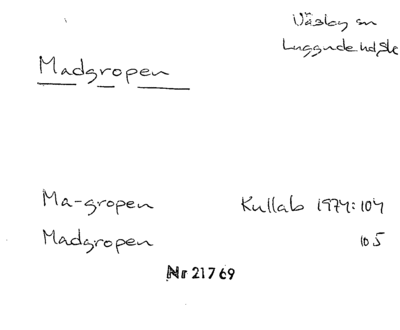 Väsby sn
Luggude hd Sk
Madgropen
Ma-gropen Kullab 1974:104
Madgropen 105
Nr 21769